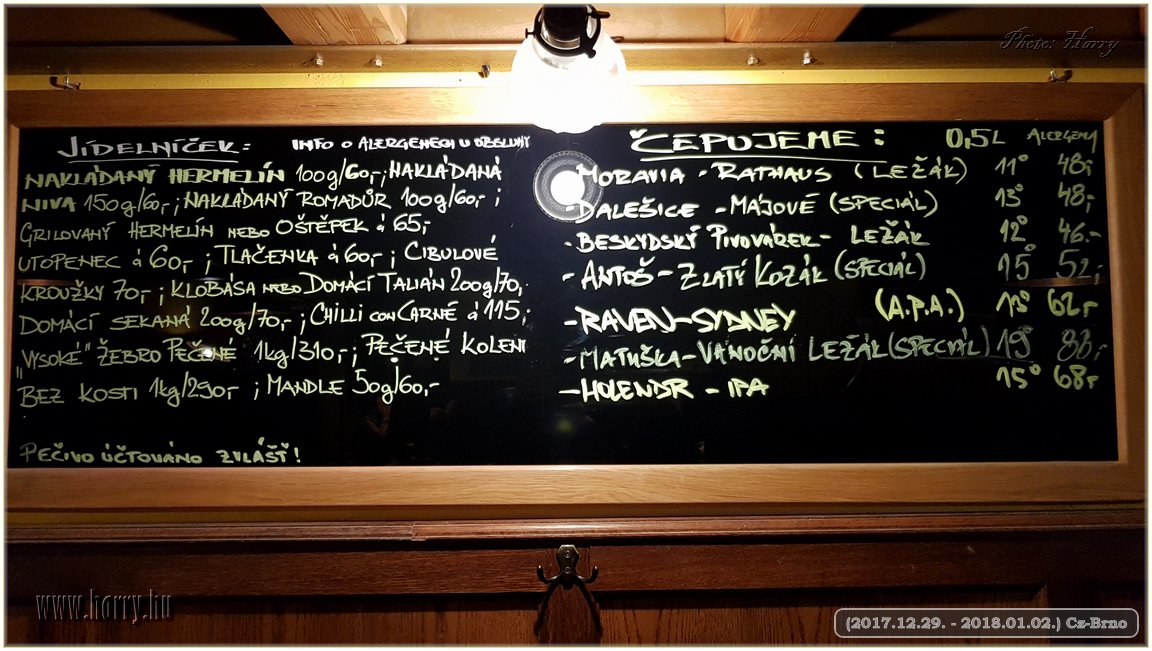 Photo: Horry
JÍDELNÍČEK:- INFO O ALERGENECH U OBSLUHY
NAKLÁDANÝ HERMELÍN 100g/60,-; NAKLÁDANÁ
NIVA 150g/60,-; NAKLÁDANÝ ROMADŮR 100g/60,- ;
GRILOVANÝ HERMELÍN NEBO OŠTĚPEK á 65,-
UTOPENEC á 60,- ; TLAČENKA á 60,- ; CIBULOVÉ
KROUŽKY 70,- ; KLOBÁSA NEBO DOMÁCÍ TALIÁN 200g/70,-
DOMÁCÍ SEKANÁ 200g/70,- ; CHILLI CON CARNE á 115,-
"VYSOKÉ" ŽEBRO PEČENÉ 1kg/310,- ; PEČENÉ KOLENO
BEZ KOSTI 1kg/290,- ; MANDLE 50g/60,-
PEČIVO ÚČTOVÁNO ZVLÁŠŤ!
ČEPUJEME: 0,5L ALERGENY
- MORAVIA - RATHAUS (LEŽÁK) 11° 48,-
- DALEŠICE - MÁJOVÉ (SPECIÁL) 13° 48,-
- BESKYDSKÝ PIVOVÁREK - LEŽÁK 12° 46.-
- ANTOŠ - ZLATÝ KOZÁK (SPECIÁL) 15° 52,-
- RAVEN - SYDNEY (A.P.A.) 13° 62,-
- MATUŠKA - VÁNOČNÍ LEŽÁK (SPECIÁL) 19° 88,-
- HOLENDR - IPA 15° 68,-
www.horry.hu
(2017.12.29. - 2018.01.02.) Cz-Brno